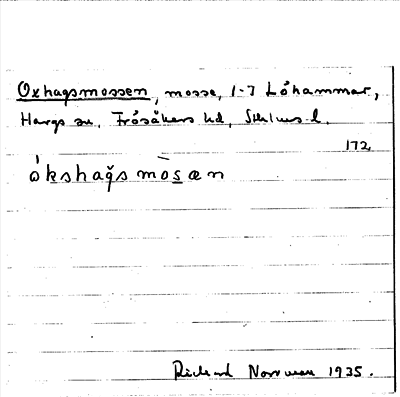 Oxhagsmossen, mosse, 1-7 Låhammar,
Hargs sn, Frösåkers hd, Sthlms l.
172
ókshaǧs mòsæn
Richard Norrman 1935.